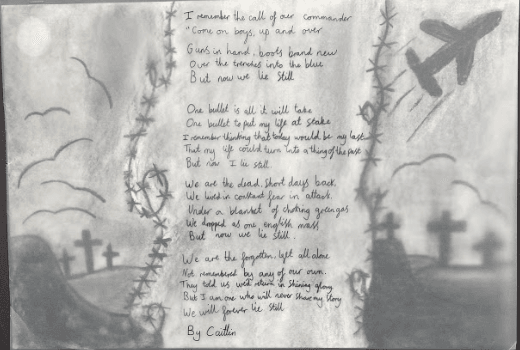 I remember the call of our commander
"Come on boys, up and over
Guns in hand, boots brand new
Over the trenches into the blue
But now we lie still
One bullet is all it will take
One bullet to put my life at stake
I remember thinking that today would be my last
That my life could turn into a thing of the past
But now I lie still
We are the dead. Short days back
We lived in constant fear in attack.
Under a blanket of choking green gas
We dropped as one english mass
But now we lie still
We are the forgotten, left all alone
Not remembered by any of our own.
They told us we'd return in shining glory
But I am one who will never share my story
We will forever lie still
By Caitlin